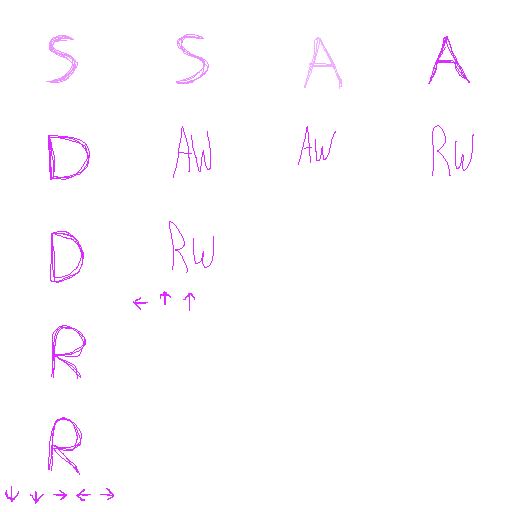 S S A A
D AW AW RW
D RW
← ↑ ↑
R
R
↓ ↓ → ← →